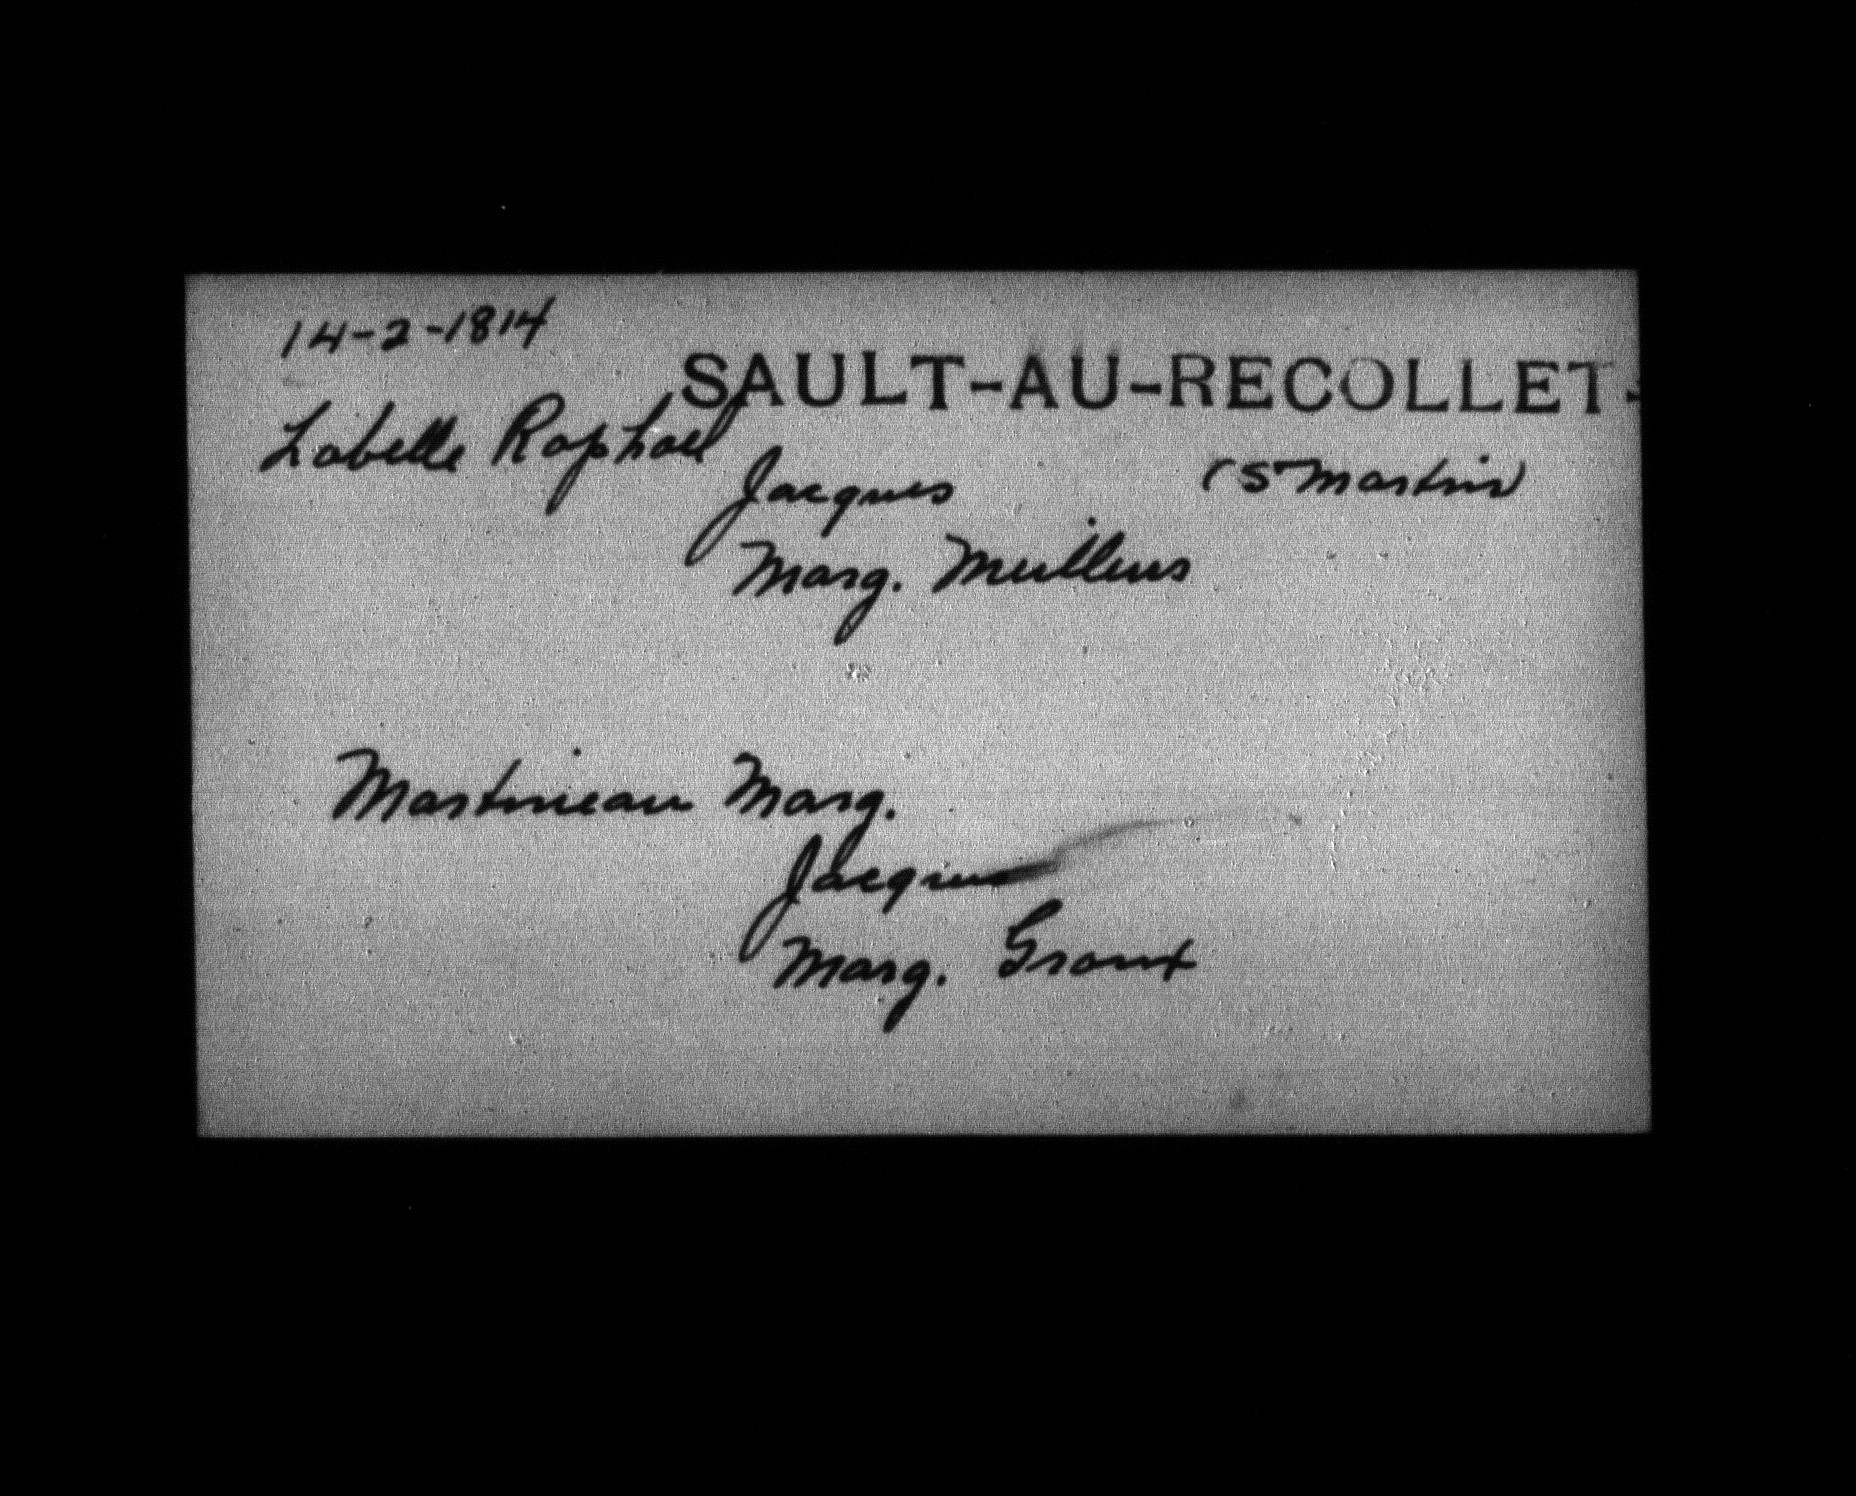 14-2-1814
SAULT-AU-RECOLLET-
Labelle Raphael
Jacques (St Martin)
Marg. Meilleurs
Martineau Marg.
Jacques
Marg. Groux